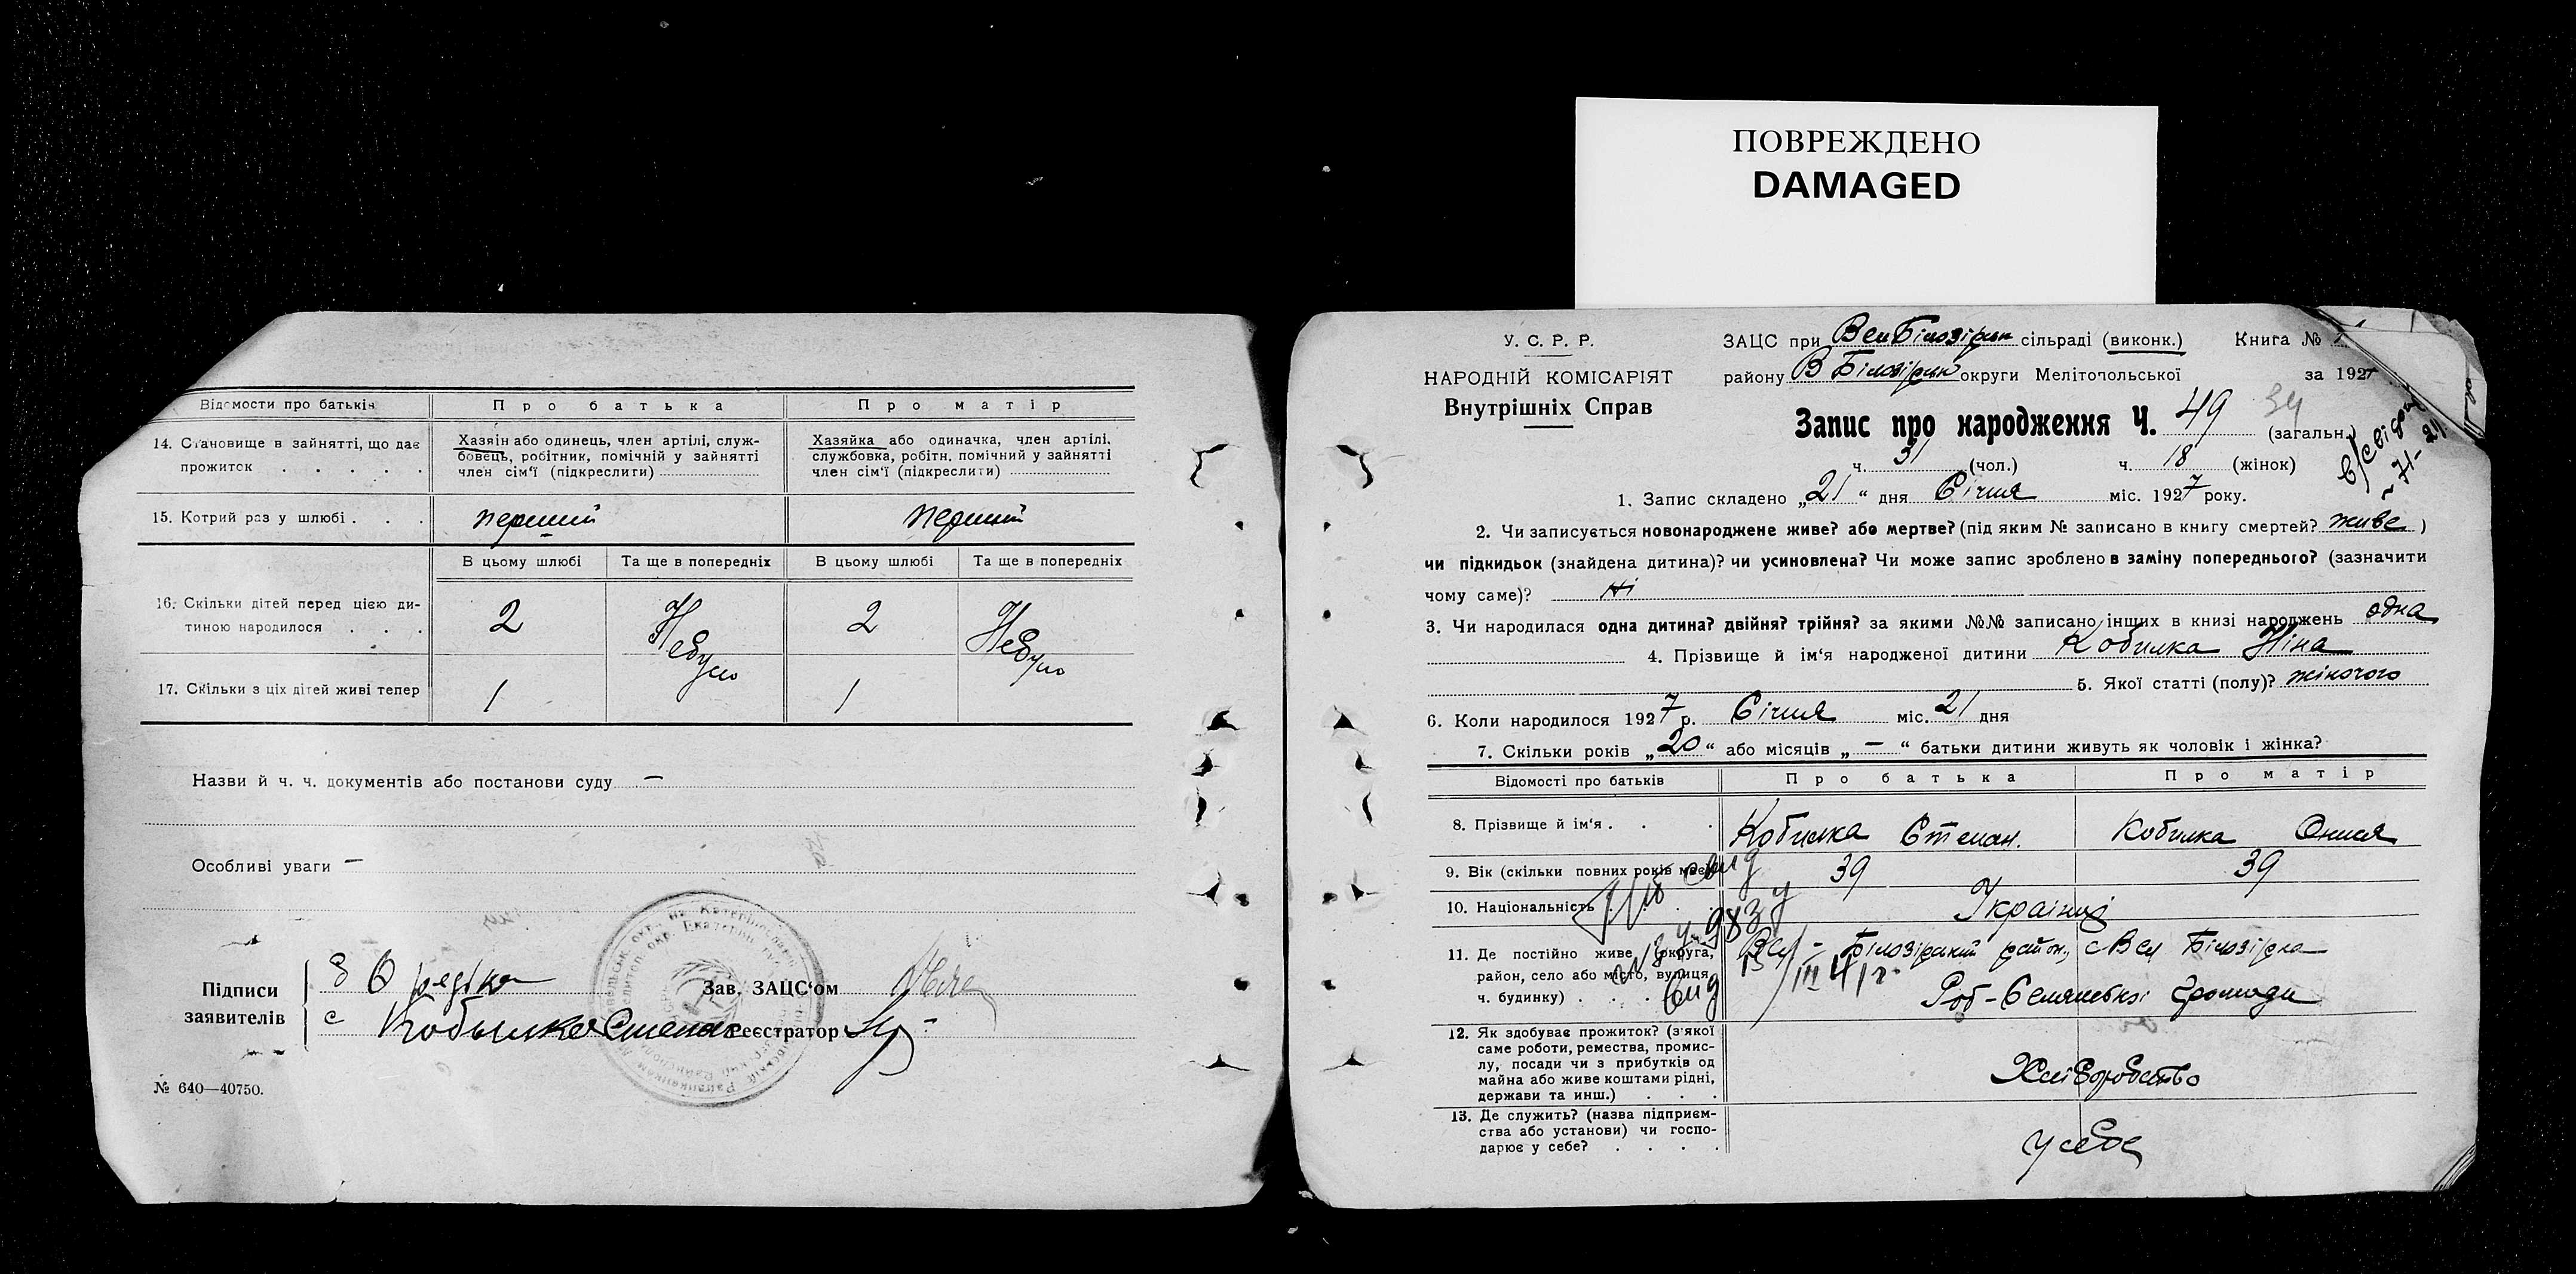 ПОВРЕЖДЕНО
DAMAGED
Відомости про батьків
Про батька
Про матір
14. Становище в зайнятті, що дає прожиток
Хазяїн або одинець, член артілі, служ-
бовець, робітник, помічній у зайнятті
член сім'ї (підкреслити)
Хазяйка або одиначка, член артілі,
службовка, робітн. помічний у зайнятті
член сім'ї (підкреслити)
15. Котрий раз у шлюбі
перший
перший
В цьому шлюбі
Та ще в попередніх
В цьому шлюбі
Та ще в попередніх
16. Скільки дітей перед цією ди-
тиною народилося
2
Небуло
2
Небуло
17. Скільки з ціх дітей живі тепер
1
1
Назви й ч. ч. документів або постанови суду —
Особливі уваги —
Підписи
заявителів
Зав. ЗАЦС'ом
с Кобылка Степан
Реєстратор
№ 640—40750.
У. С. Р. Р.
НАРОДНІЙ КОМІСАРІЯТ
Внутрішніх Справ
ЗАЦС при ВелБілозірськ сільраді (виконк.)
Книга №
району В Білозірськ округи Мелітопольської
за 1927
Запис про народження Ч. 49
34
(загальн.)
ч. 31 (чол.)
ч. 18 (жінок)
1. Запис складено „21“ дня Січня міс. 1927 року.
2. Чи записується новонароджене живе? або мертве? (під яким № записано в книгу смертей? живе )
чи підкидьок (знайдена дитина)? чи усиновлена? Чи може запис зроблено в заміну попереднього? (зазначити
чому саме)? Ні
3. Чи народилася одна дитина? двійня? трійня? за якими №№ записано інших в книзі народжень одна
4. Прізвище й ім'я народженої дитини Кобилка Ніна
5. Якої статті (полу)? жіночого
6. Коли народилося 1927 р. Січня міс. 21 дня
7. Скільки років „20“ або місяців „—“ батьки дитини живуть як чоловік і жінка?
Відомості про батьків
Про батька
Про матір
8. Прізвище й ім'я
Кобилка Степан.
Кобилка Онися
9. Вік (скільки повних років має)
39
39
10. Національність
Українці
11. Де постійно живе (округа,
район, село або місто, вулиця,
ч. будинку)
Вел-Білозірський район, с Вел Білозірка
громади
12. Як здобуває прожиток? (з'якої
саме роботи, ремества, промис-
лу, посади чи з прибутків од
майна або живе коштами рідні,
держави та инш.)
Хліборобство
13. Де служить? (назва підприєм-
ства або установи) чи госпо-
дарює у себе?
у себе